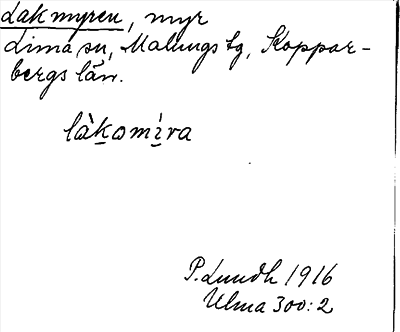 Lakmyren, myr
Lima sn, Malungs tg, Koppar-
bergs län.
làkomíra
P. Lundh 1916
Ulma 300:2